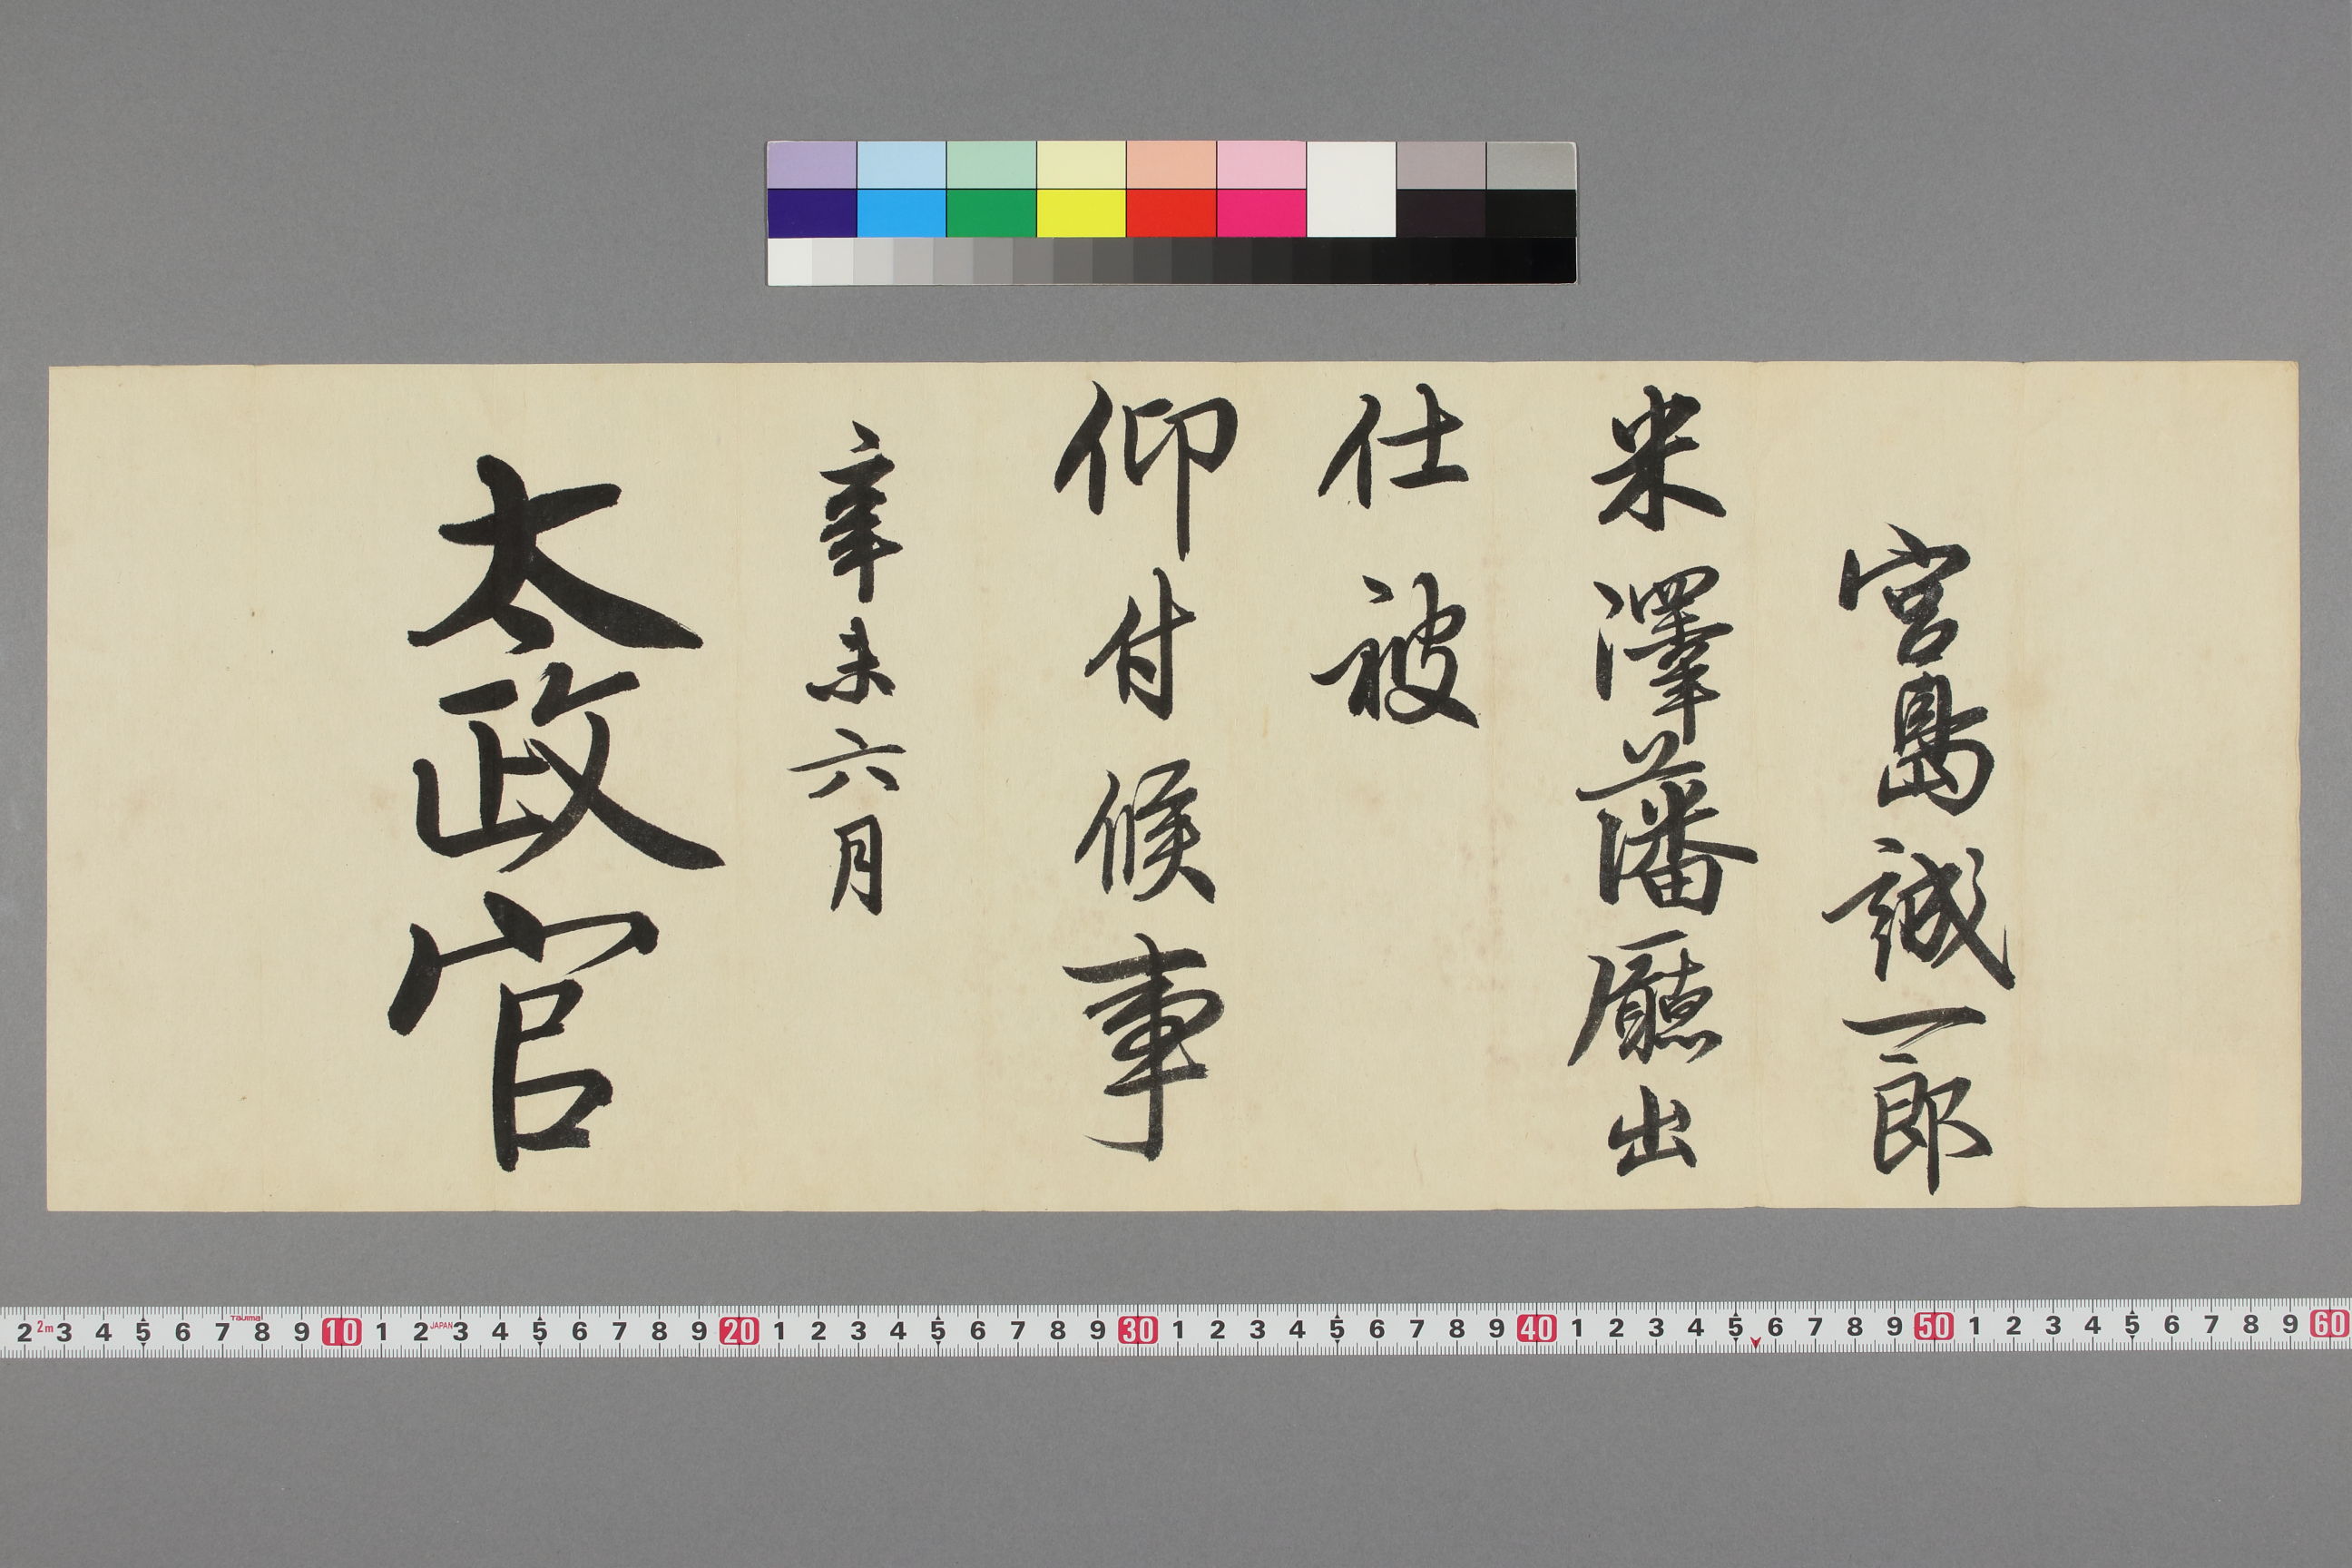 宮島誠一郎
米澤藩廳出
仕被
仰付候事
辛未六月
太政官
2 2m 3 4 5 6 7 Tajima 8 9 10 1 2 JAPAN 3 4 5 6 7 8 9 20 1 2 3 4 5 6 7 8 9 30 1 2 3 4 5 6 7 8 9 40 1 2 3 4 5 6 7 8 9 50 1 2 3 4 5 6 7 8 9 60